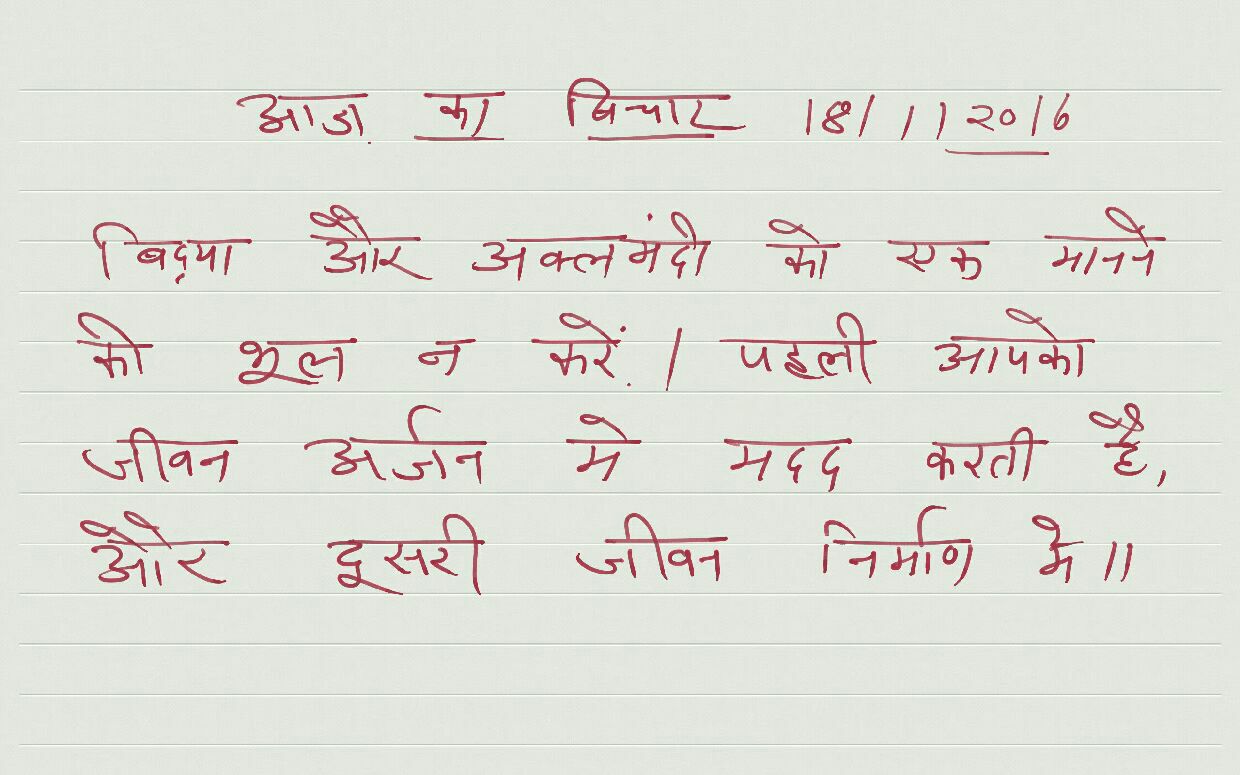 आज का बिचार 18/11/2016
बिद्या और अक्लमंदी को एक मानने
की भूल न करें। पहली आपको
जीवन अर्जन मे मदद करती है,
और दूसरी जीवन निर्माण मे॥